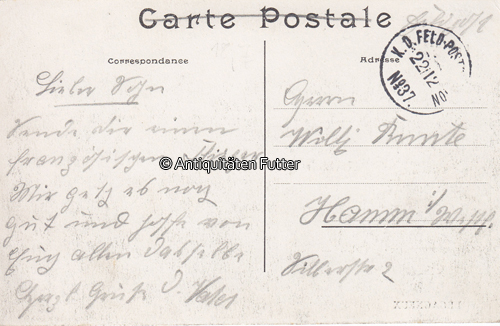 Carte Postale
Feldpost
Correspondance
Adresse
K.D. FELD-POST
22/12
No 37.
Lieber Sohn
Sende dir einen
französischen
Mir geht es noch
gut und hoffe von
Euch allen dasselbe
Herzl Grüße d. Vater
Herrn
Willy
Hamm i/ Westf.
Killerstr 2
© Antiquitäten Futter